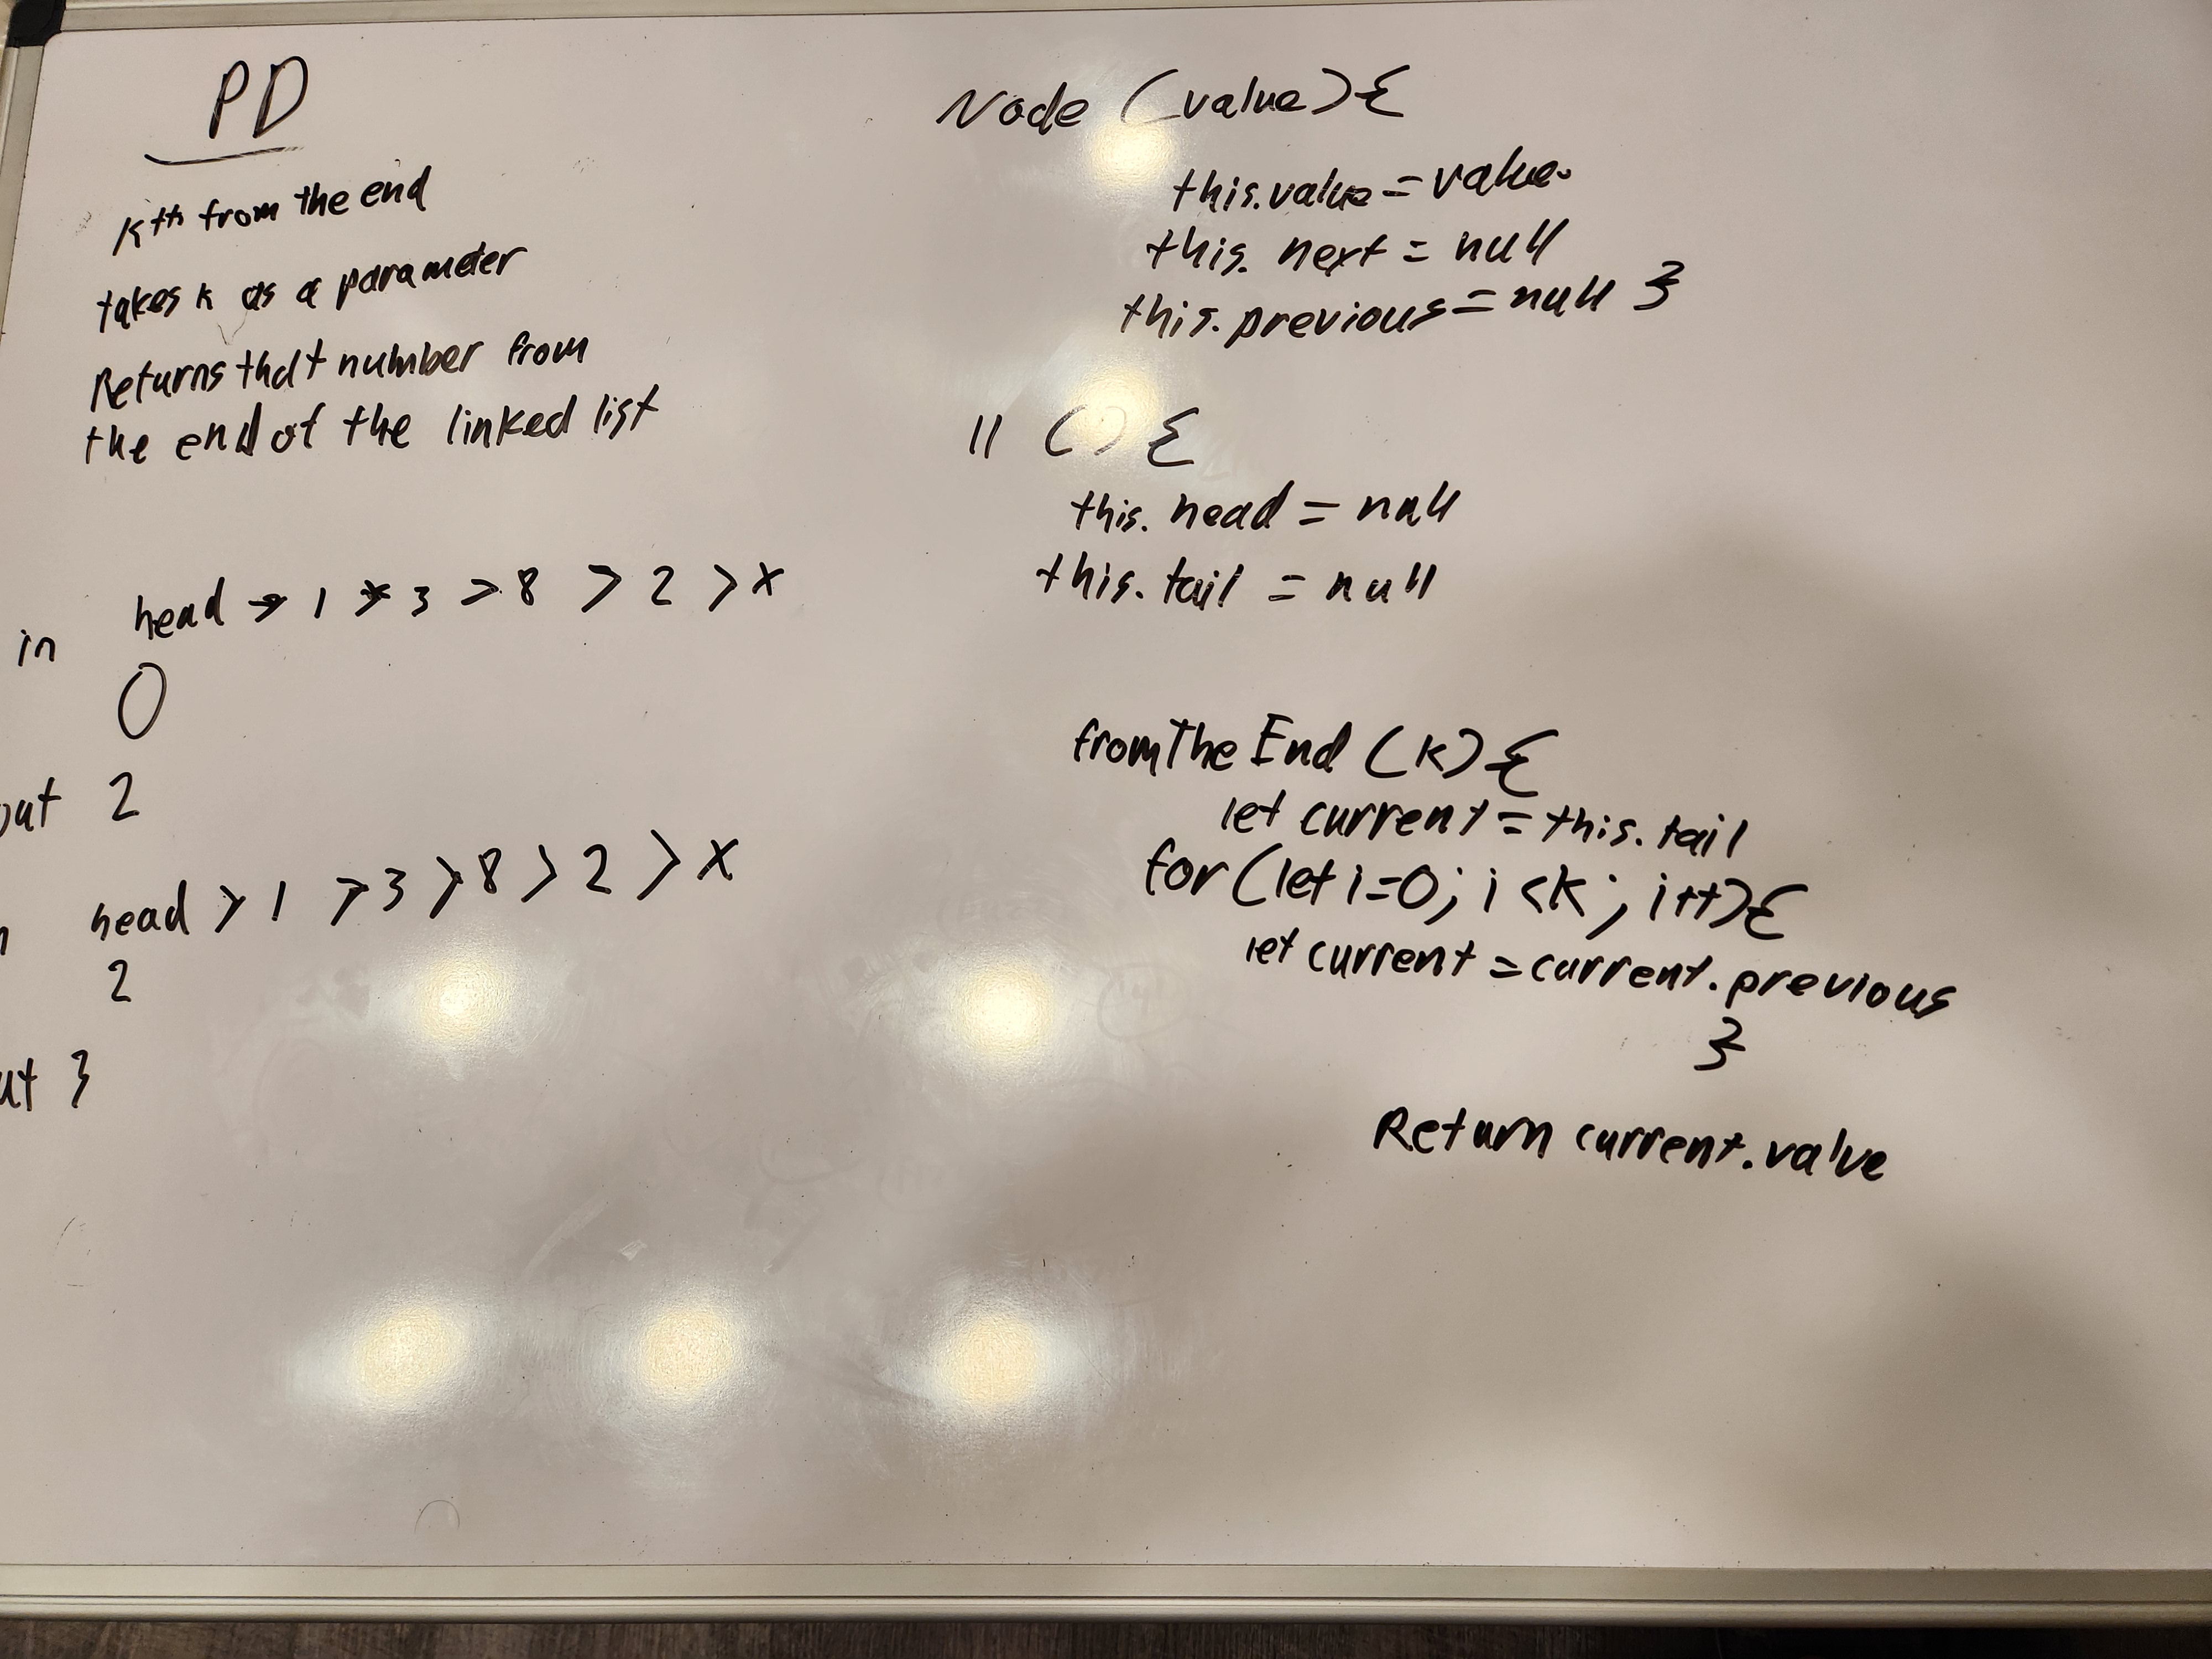 PD
kth from the end
takes k as a parameter
Returns that number from
the end of the linked list
in
head → 1 → 3 > 8 > 2 > x
0
out 2
head > 1 > 3 > 8 > 2 > x
2
out 3
Node (value) {
this.value = value
this.next = null
this.previous = null }
ll () {
this.head = null
this.tail = null
fromTheEnd (k) {
let current = this.tail
for (let i=0; i < k; i++) {
let current = current.previous
}
Return current.value